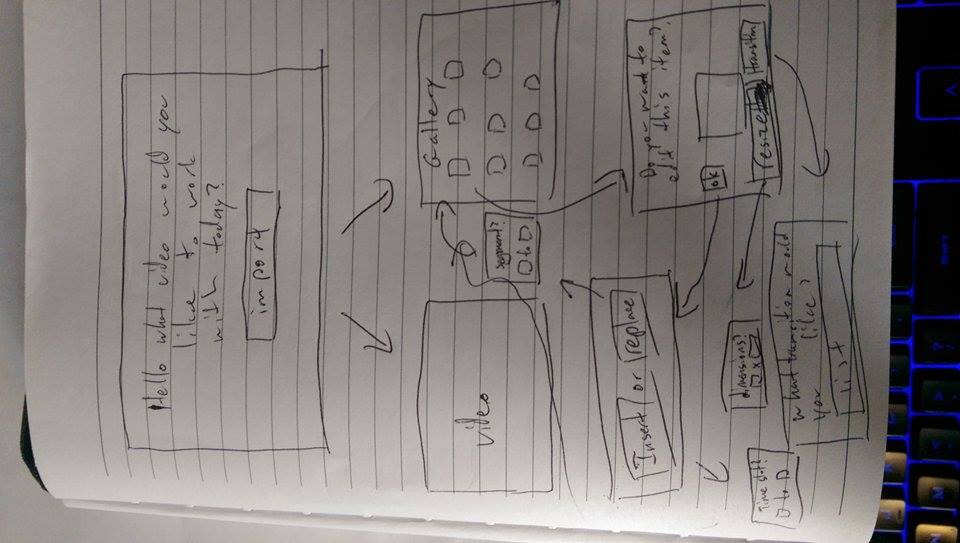 Hello what video would you
like to work
with today?
import
video
Gallery
segment?
□ to □
Insert or replace
Do you want to
edit this item?
ok
resize
transition
dimensions?
□ x □
What transition would
you like?
list
Time slot?
□ to □